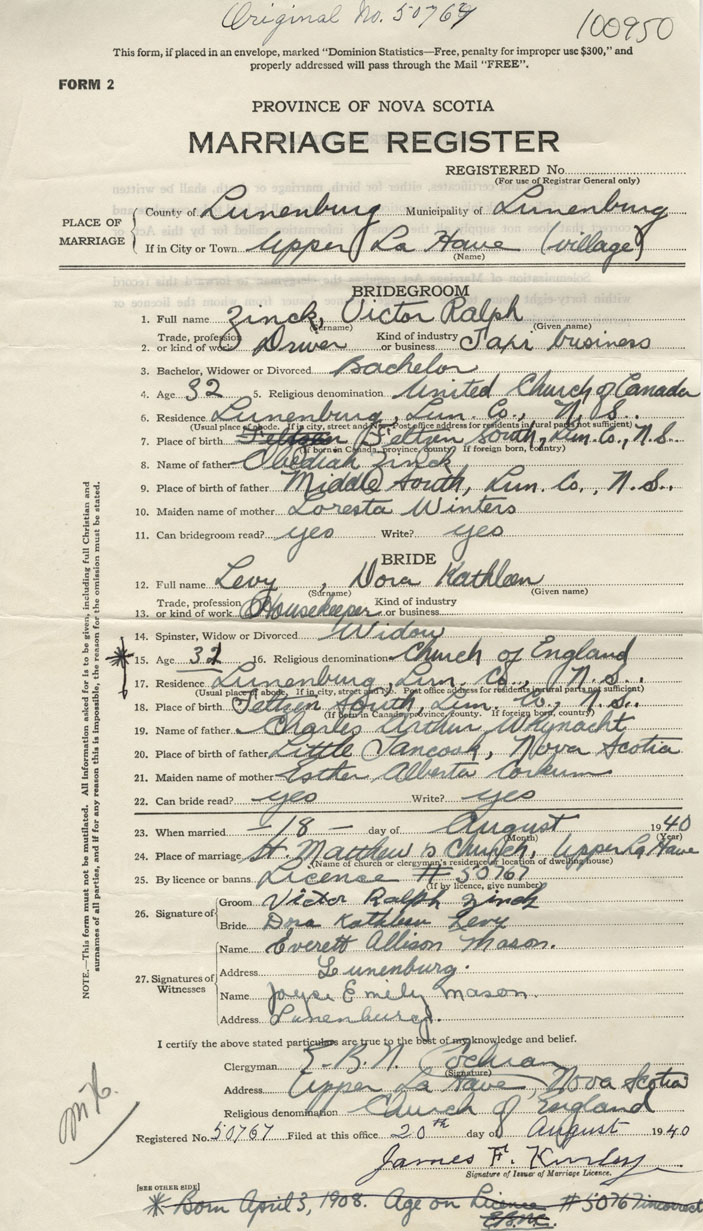 Original No. 50767
100950
This form, if placed in an envelope, marked "Dominion Statistics—Free, penalty for improper use $300," and
properly addressed will pass through the Mail "FREE".
FORM 2
PROVINCE OF NOVA SCOTIA
MARRIAGE REGISTER
REGISTERED No.
(For use of Registrar General only)
PLACE OF MARRIAGE
County of Lunenburg Municipality of Lunenburg
If in City or Town Upper La Have (village)
(Name)
BRIDEGROOM
1. Full name Zinck, Victor Ralph
(Surname) (Given name)
2. Trade, profession or kind of work Driver Kind of industry or business Taxi business
3. Bachelor, Widower or Divorced Bachelor
4. Age 32 5. Religious denomination United Church of Canada
6. Residence Lunenburg, Lun. Co., N.S.
(Usual place of abode. If in city, street and No. Post office address for residents in rural parts not sufficient)
7. Place of birth Feltzen South, Lun. Co., N.S.
(If born in Canada, province, county. If foreign born, country)
8. Name of father Obediah Zinck
9. Place of birth of father Middle South, Lun. Co., N.S.
10. Maiden name of mother Loresta Winters
11. Can bridegroom read? yes Write? yes
BRIDE
12. Full name Levy, Dora Kathleen
(Surname) (Given name)
13. Trade, profession or kind of work Housekeeper Kind of industry or business
14. Spinster, Widow or Divorced Widow
* 15. Age 32 16. Religious denomination Church of England
17. Residence Lunenburg, Lun. Co., N.S.
(Usual place of abode. If in city, street and No. Post office address for residents in rural parts not sufficient)
18. Place of birth Feltzen South, Lun. Co., N.S.
(If born in Canada, province, county. If foreign born, country)
19. Name of father Charles Arthur Whynacht
20. Place of birth of father Little Tancook, Nova Scotia
21. Maiden name of mother Esther Alberta Corkum
22. Can bride read? yes Write? yes
23. When married -18- day of August 1940
(Month) (Year)
24. Place of marriage St. Matthew's Church, Upper La Have
(Name of church or clergyman's residence or location of dwelling house)
25. By licence or banns Licence # 50767
(If by licence, give number)
26. Signature of
Groom Victor Ralph Zinck
Bride Dora Kathleen Levy
27. Signatures of Witnesses
Name Everett Allison Mason.
Address Lunenburg.
Name Joyce Emily Mason.
Address Lunenburg.
I certify the above stated particulars are true to the best of my knowledge and belief.
Clergyman E.B.N. Cochran
(Signature)
Address Upper La Have, Nova Scotia
Religious denomination Church of England
Registered No. 50767 Filed at this office 20th day of August 1940
James F. Kinley
Signature of Issuer of Marriage Licence.
[SEE OTHER SIDE]
* Born April 3, 1908. Age on Licence # 50767 incorrect
NOTE.—This form must not be mutilated. All information asked for is to be given, including full Christian and
surnames of all parties, and if for any reason this is impossible, the reason for the omission must be stated.